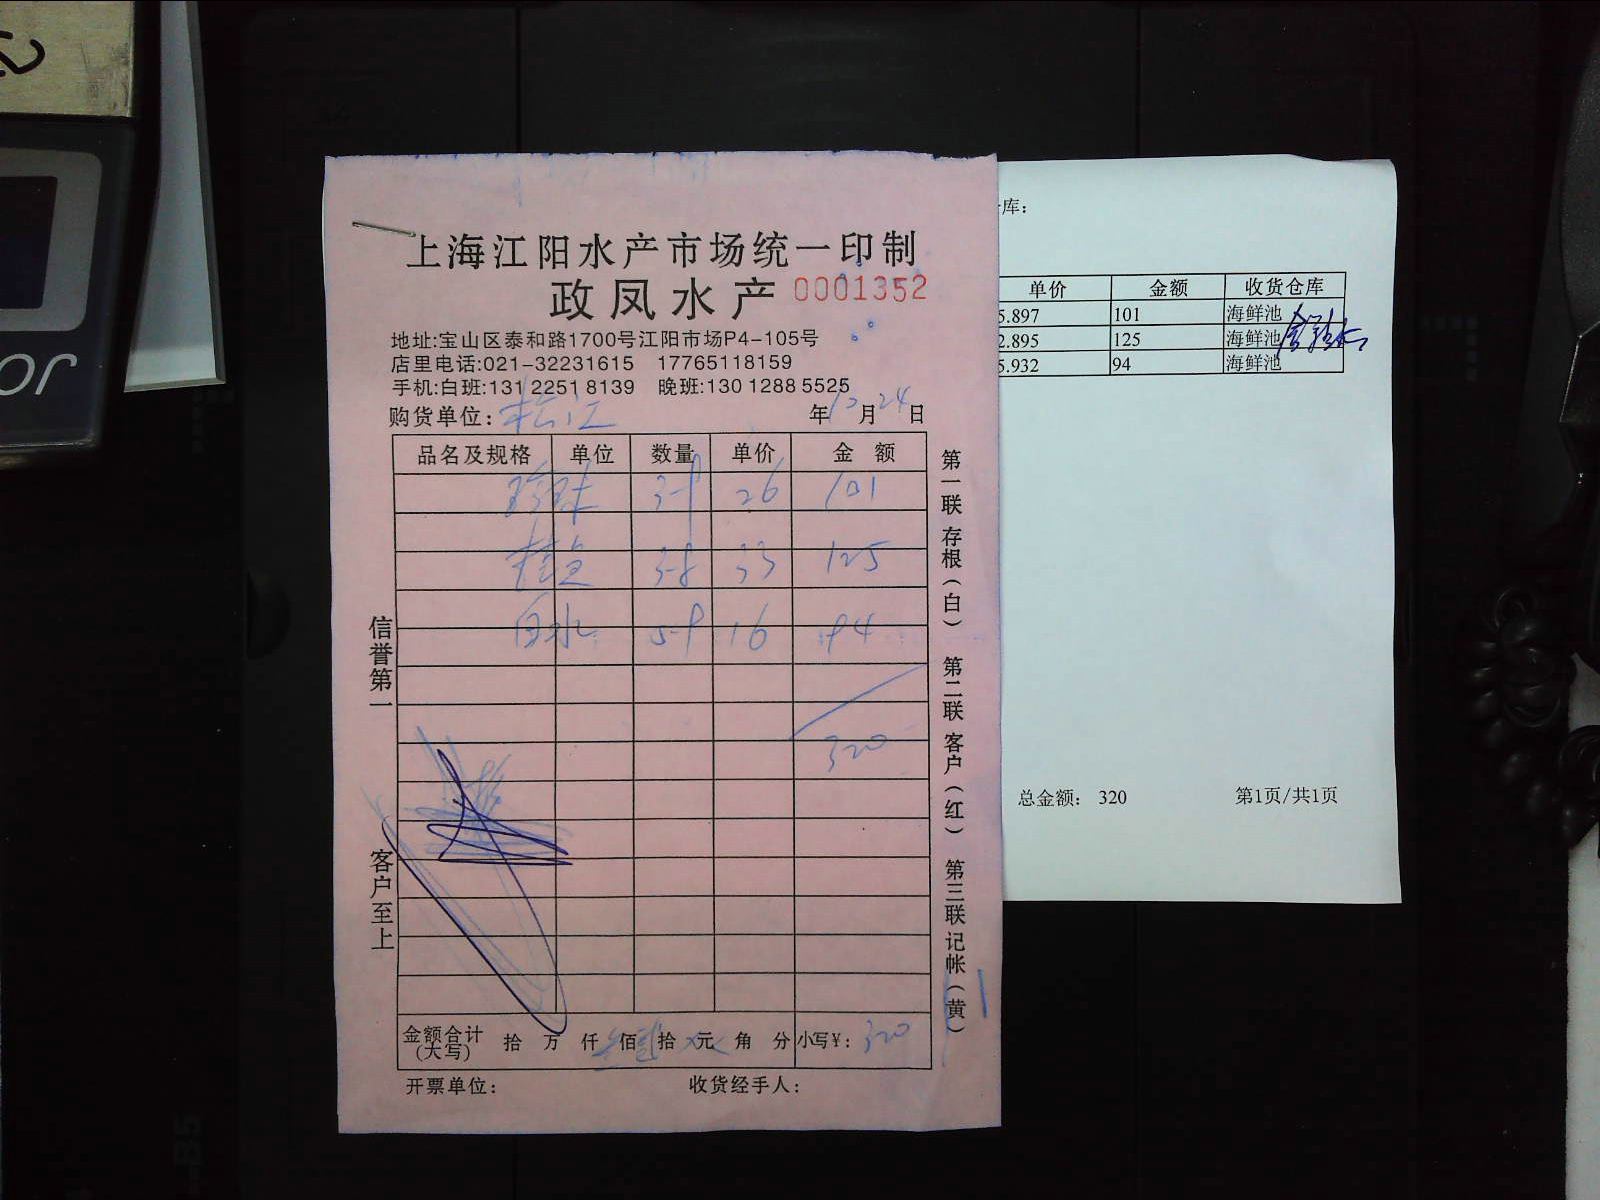 上海江阳水产市场统一印制
政凤水产 0001352
地址:宝山区泰和路1700号江阳市场P4-105号
店里电话:021-32231615 17765118159
手机:白班:131 2251 8139 晚班:130 1288 5525
购货单位: 松江 年 12 月 24 日
品名及规格 单位 数量 单价 金 额
珍珠 3-9 26 101
桂鱼 3-8 33 125
白水 5-9 16 94
320
信誉第一
客户至上
第一联 存根(白) 第二联 客户(红) 第三联 记帐(黄)
金额合计(大写) 拾 万 仟 叁 佰 贰 拾 元 角 分 小写¥: 320
开票单位: 收货经手人:
库:
单价 金额 收货仓库
5.897 101 海鲜池
2.895 125 海鲜池
5.932 94 海鲜池
总金额: 320 第1页/共1页
B5
or